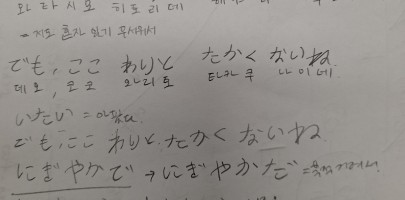 와타시모 히토리데
= 저도 혼자 있기 무서워서
でも,ここ わりと たかく ないね
데모, 코코 와리토 타카쿠 나이네
いたい = 아팠다
でも,ここ わりと たかく ないね
にぎやかで → にぎやかだ =